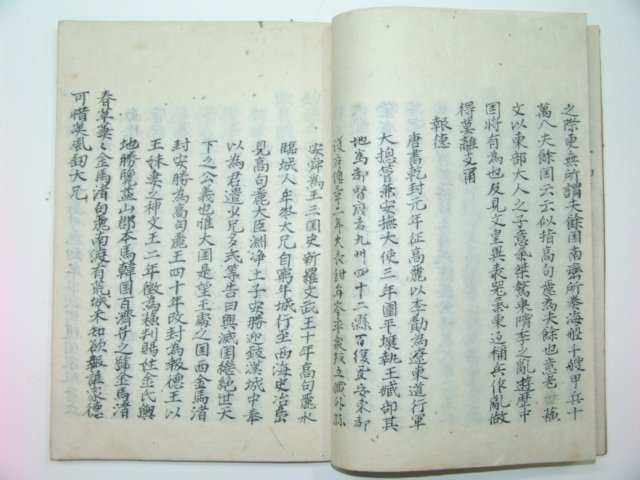 之際東無所謂夫餘国南謫所卷海船十艘甲兵十
萬八夫餘国云云似指高句麗為夫餘也意老
文以東部大人之子意氣桀驁東隋李之亂遊歷中
国将有為也及見文皇與
得莫離支甭
報德
唐書乾封元年征高麗以李勣為遼東道行軍
大摠管兼安撫大使三年圍平壤執王臧部其
地為都督府者九州四十二縣百復置安東都
護府総章二年大長鉗牟岑率衆叛立臧外孫
安舜為王三国史新羅文武王十年高句麗水
臨城人牟岑大兄自窮牟城行至西海史冶島
見高句麗大臣淵净土子安勝迎致漢城中奉
以為君遣少兄多式等告曰興滅国継絶世天
下之公義也惟大国是望王處之国西金馬渚
封安勝為高句麗王四十年改封為報德王以
王妹妻之神文王二年徵為蘓判賜姓金氏興
地勝覽益山郡本馬韓国百濟并之歸金馬渚
春草萋萋金馬渚句麗南渡有荒城未知欲報誰家德
可惜英風劒大兄